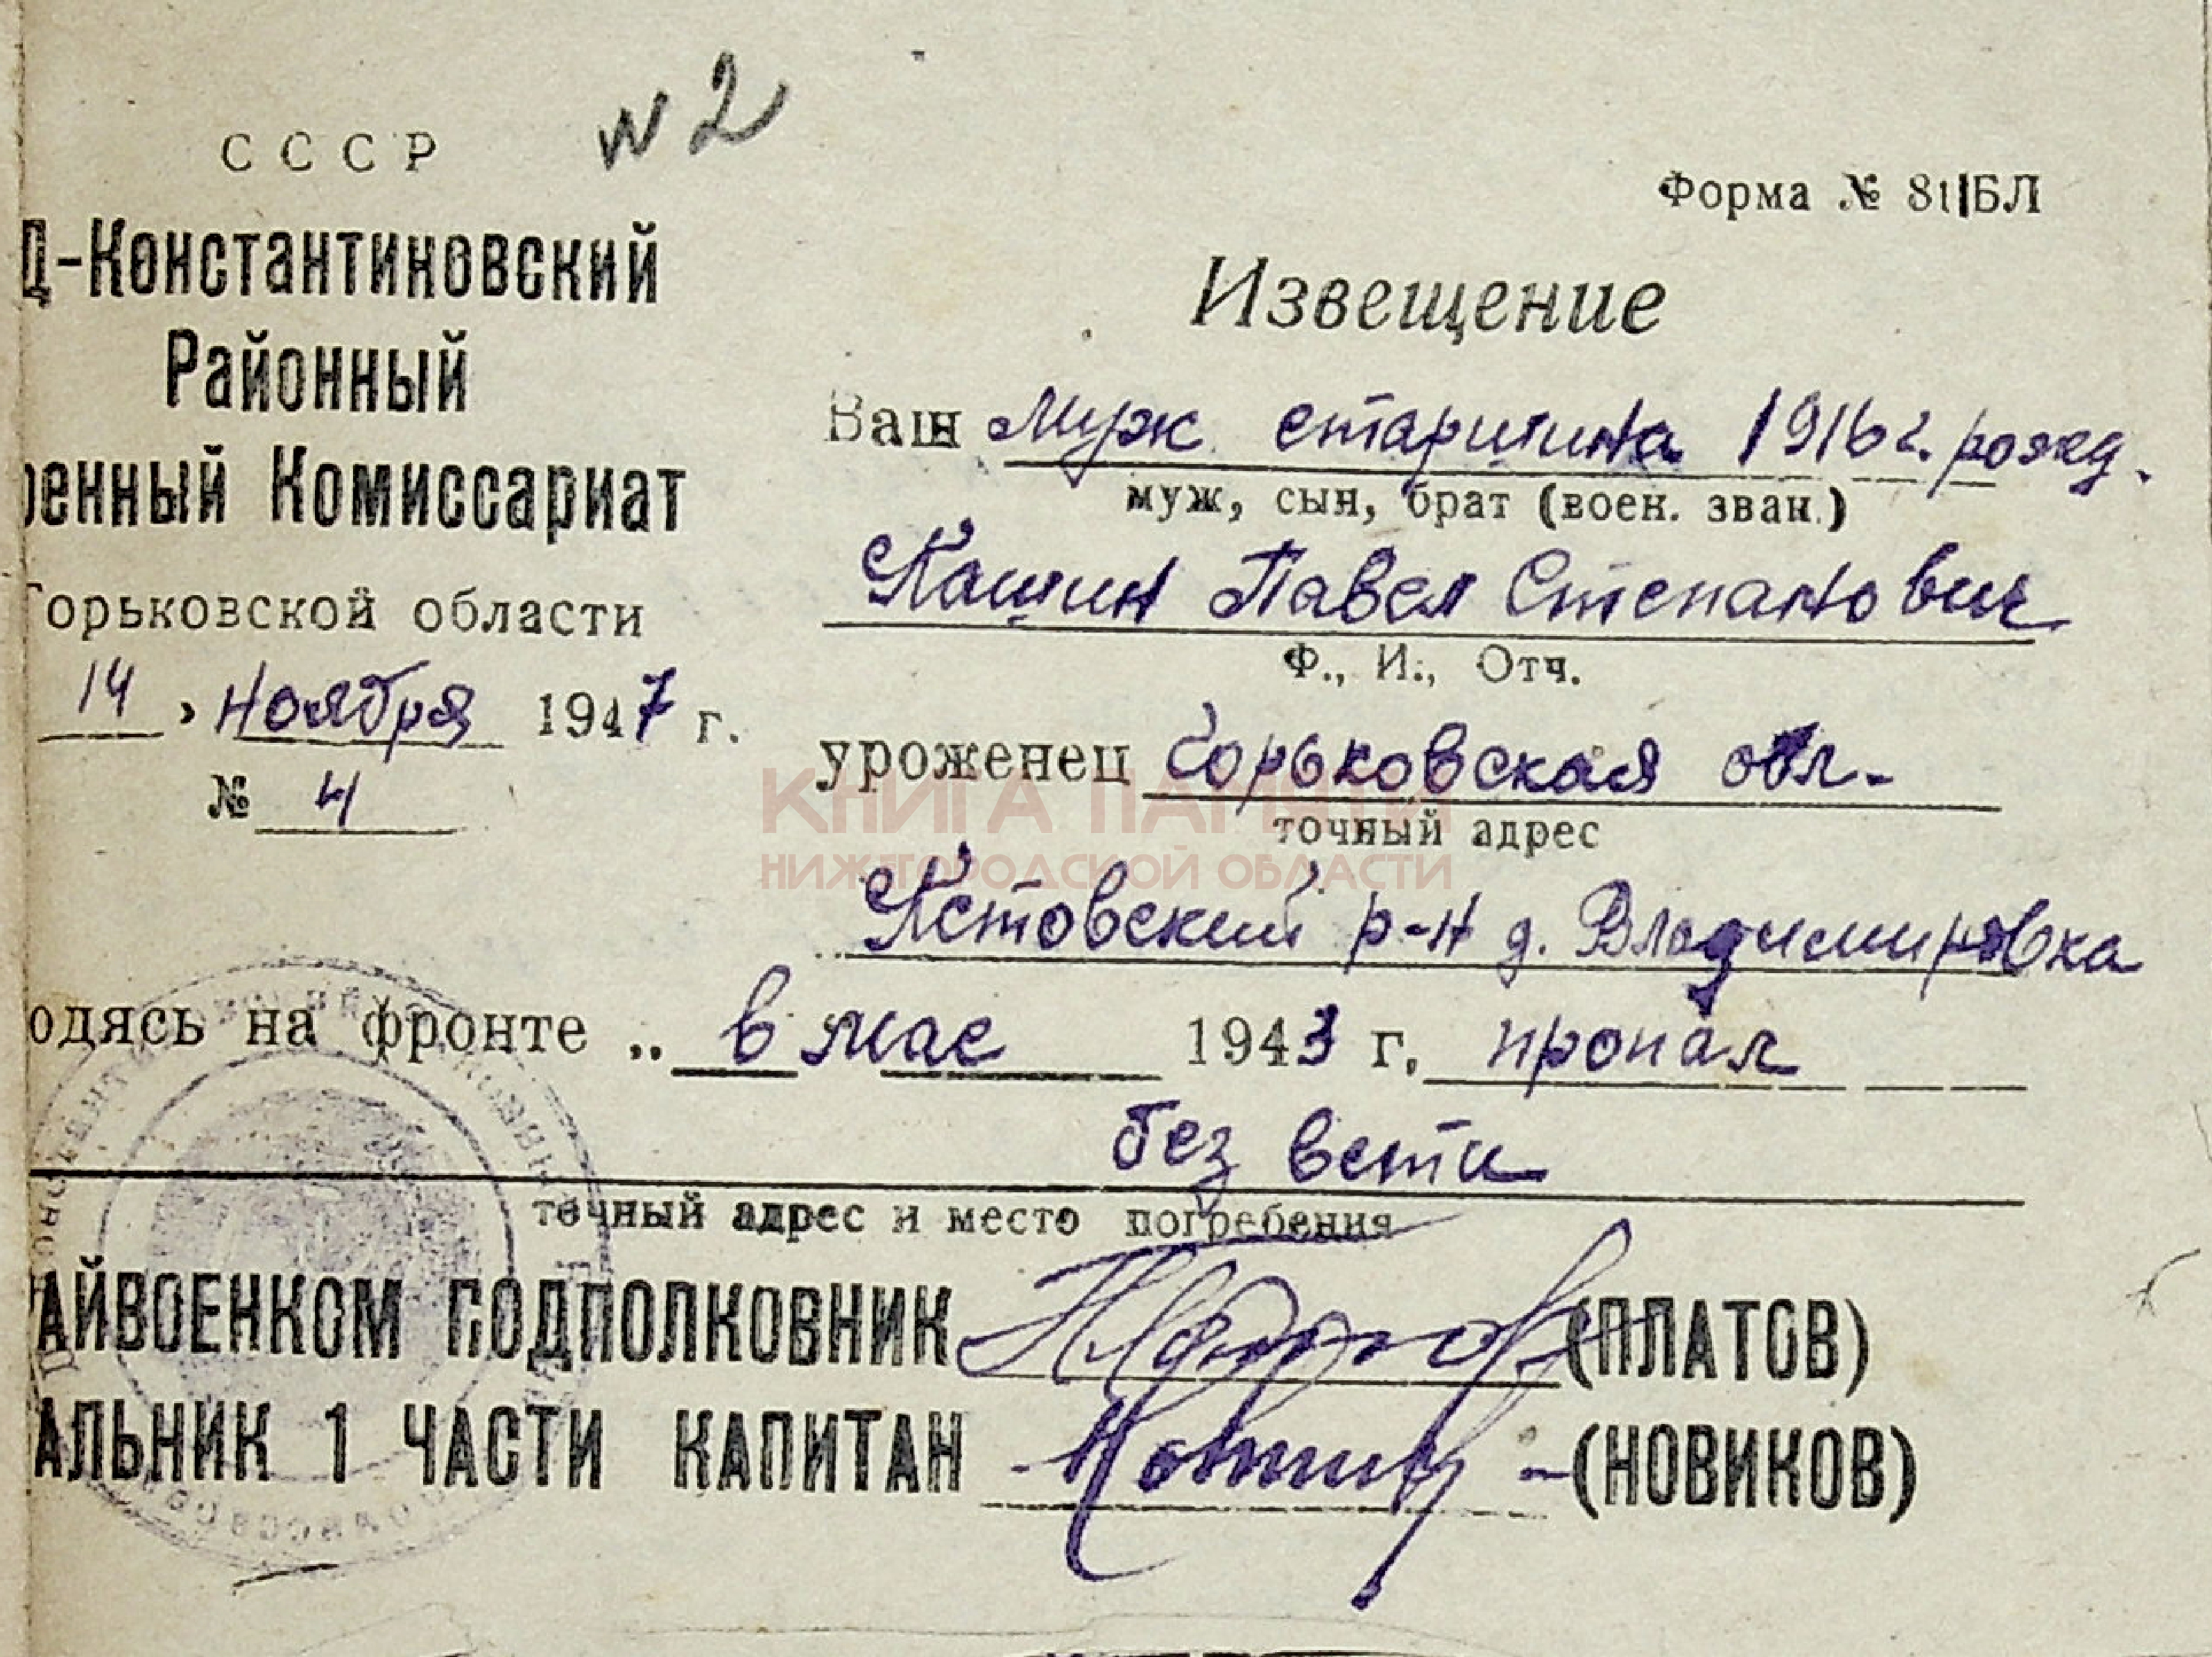 № 2
СССР
Форма № 81|БЛ
Д-Константиновский
Районный
енный Комиссариат
Горьковской области
14 , ноября 1947 г.
№ 4
Извещение
Ваш муж старшина 1916 г. рожд.
муж, сын, брат (воен. зван.)
Кашин Павел Степанович
Ф., И., Отч.
уроженец Горьковская обл.
точный адрес
Кстовский р-н д. Владимировка
КНИГА ПАМЯТИ
НИЖЕГОРОДСКОЙ ОБЛАСТИ
одясь на фронте „ в мае 1943 г. пропал
без вести
точный адрес и место погребения
АЙВОЕНКОМ ПОДПОЛКОВНИК Платов (ПЛАТОВ)
АЛЬНИК 1 ЧАСТИ КАПИТАН Новиков (НОВИКОВ)